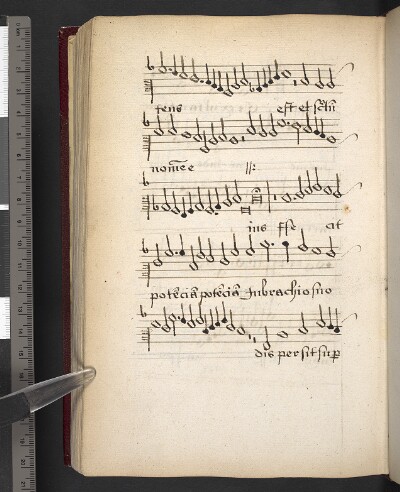 tens est et sctū
nomē e
ius ffe cit
potēciā potēciā In brachio suo
dis persit sup